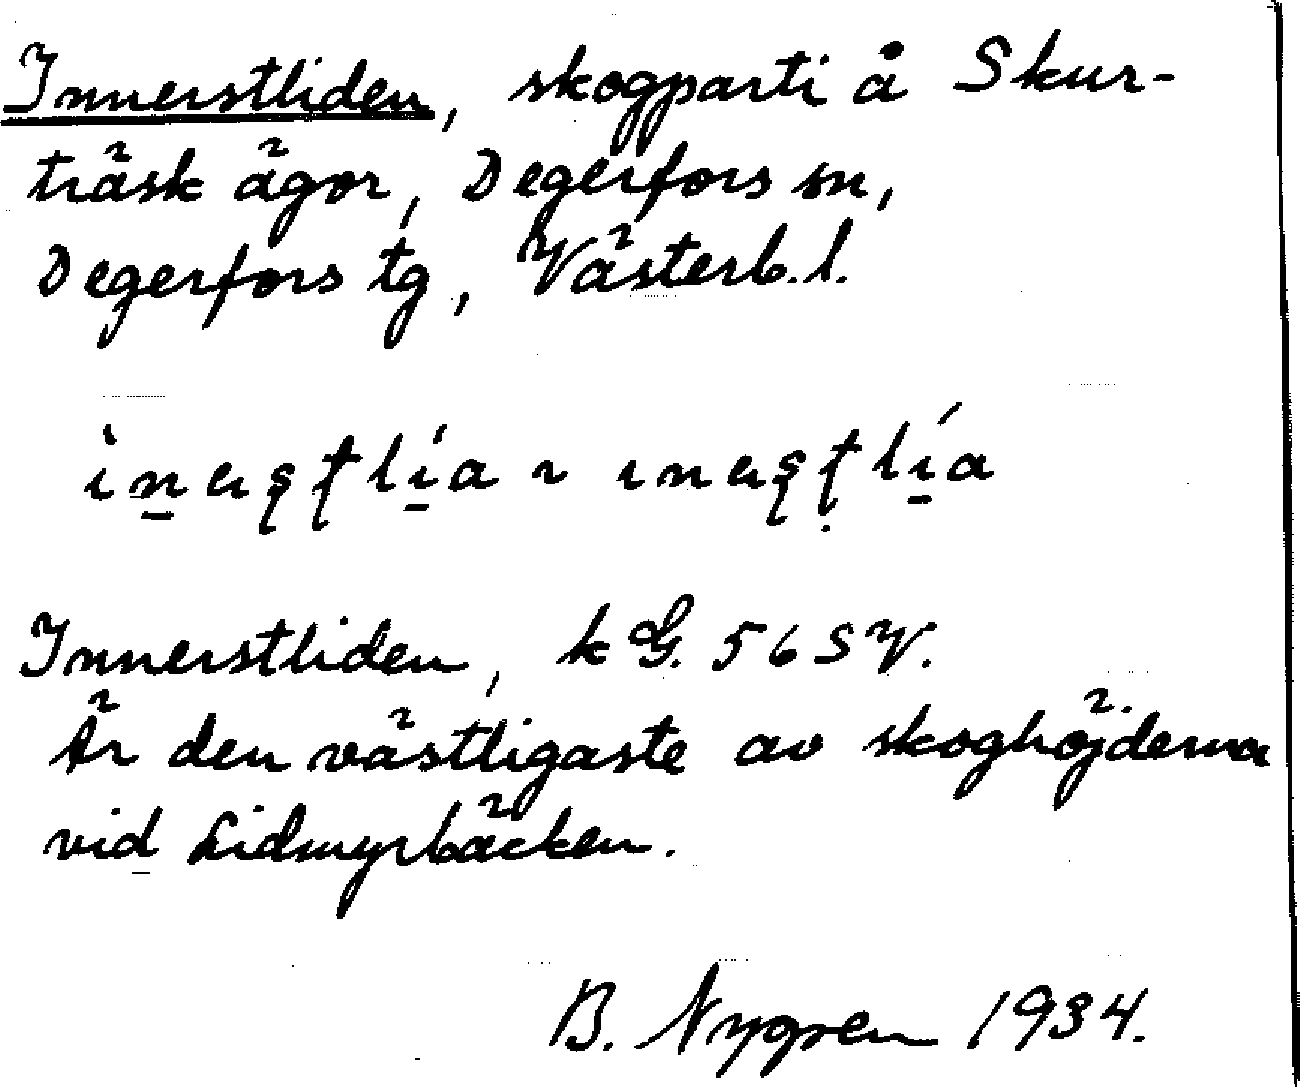 Innerstliden, skogparti å Skur-
träsk ägor, Degerfors sn,
Degerfors tg, Västerb.l.
Innerstliden, kG. 56 SV.
Är den västligaste av skoghöjderna
vid Lidmyrbäcken.
B. Nygren 1934.